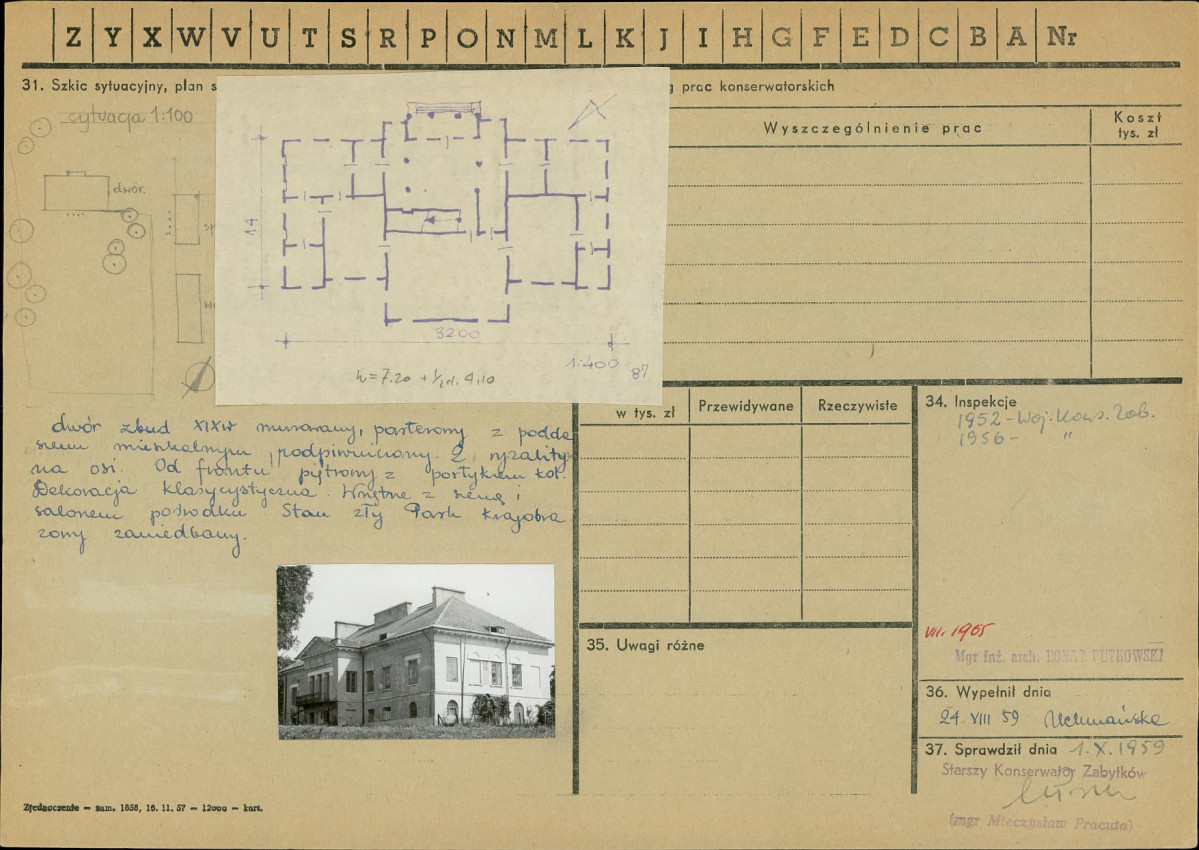 Z Y X W V U T S R P O N M L K J I H G F E D C B A Nr
31. Szkic sytuacyjny, plan s
g prac konserwatorskich
sytuacja 1:100
dwór.
sp
14
3200
1:400
87
h = 7.20 + 1/2 4,10
Wyszczególnienie prac
Koszt
tys. zł
w tys. zł
Przewidywane
Rzeczywiste
dwór zbud XIXw murowany, parterowy z podda
szem mieszkalnym, podpiwniczony. 2 ryzality
na osi. Od frontu piętrowy z portykiem kol.
Dekoracja klasycystyczna. Wnętrze z sienią i
salonem pośrodku Stan zły Park krajobra
zowy zaniedbany.
34. Inspekcje
1952 - Woj. Kons. Zab.
1956 - "
VII. 1965
Mgr inż. arch. DONAT PUTKOWSKI
35. Uwagi różne
36. Wypełnił dnia
24. VIII 59
37. Sprawdził dnia 1.X.1959
Starszy Konserwator Zabytków
(mgr Mieczysław Pracuta)
Zjednoczenie — zam. 1858, 16. 11. 57 — 12000 — kart.